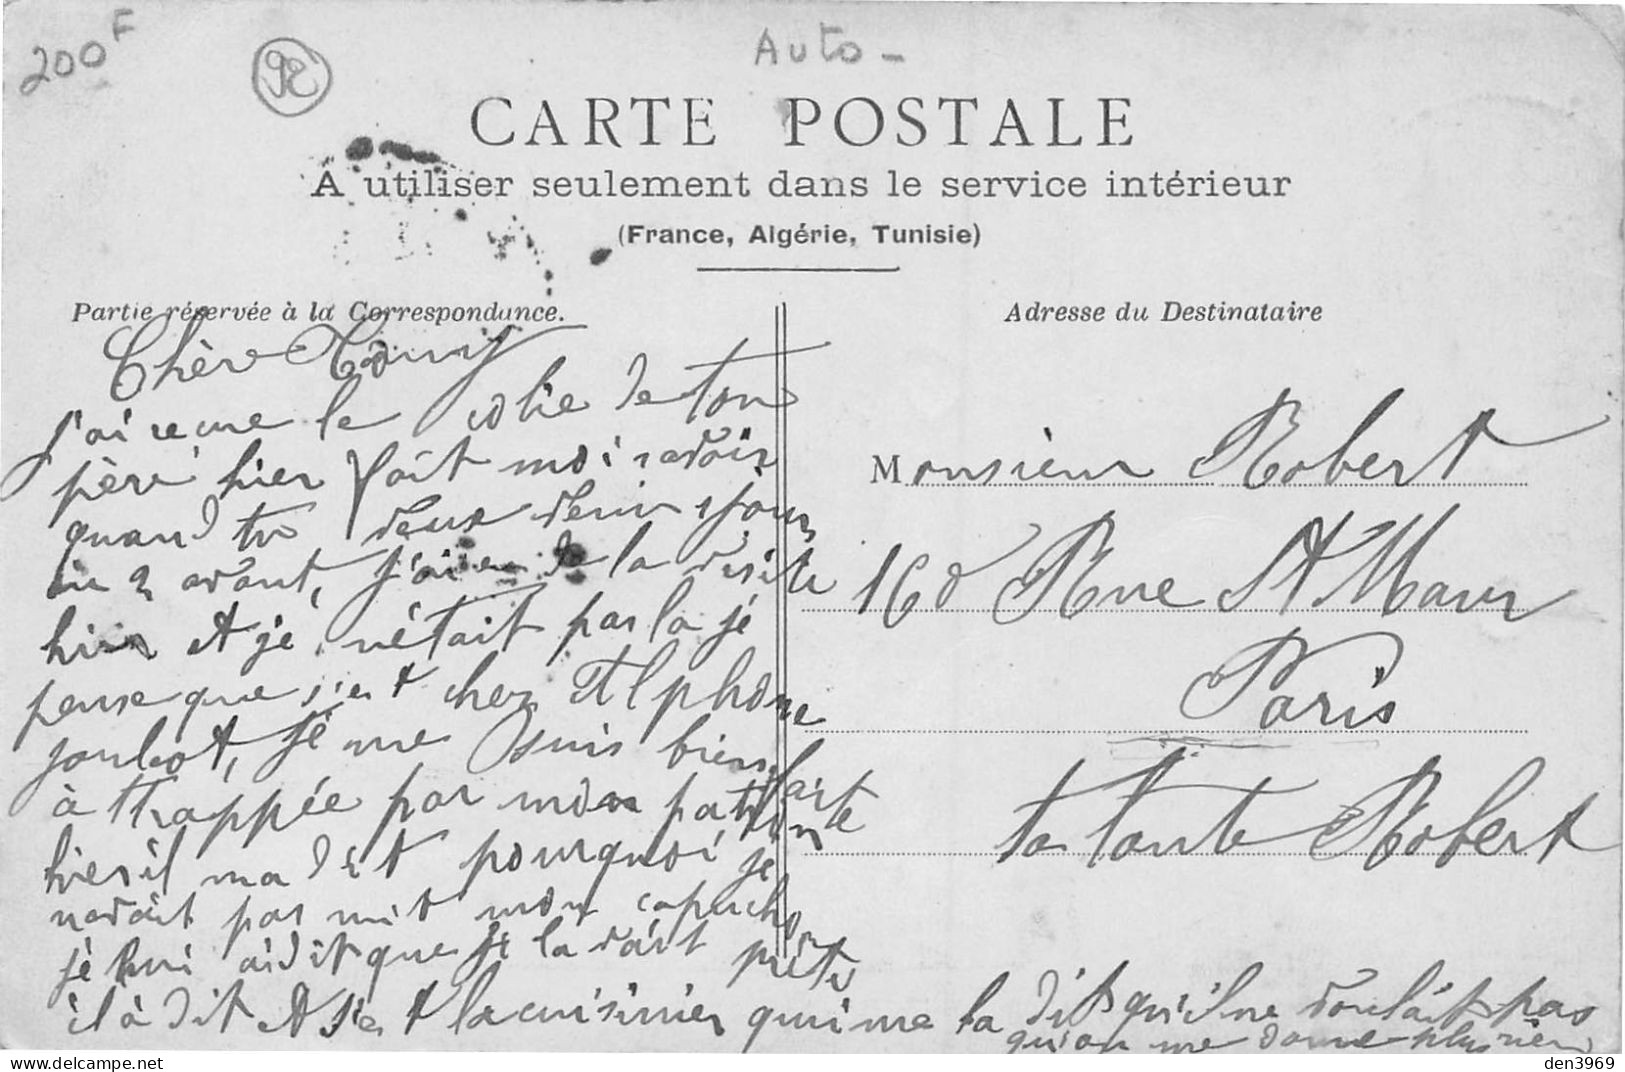 200F
Auto -
CARTE POSTALE
A utiliser seulement dans le service intérieur
(France, Algérie, Tunisie)
Partie réservée à la Correspondance.
Adresse du Destinataire
Chère
j'ai recue le colie de ton
père hier fait moi savoir
quand tu veux venir 1 jour
ou 2 avant, j'ai eu de la visite
hier et je n'était pas la je
pense que s'est chez Alphonse
joubot, je me suis bien faite
àttrappée par mon patron
hier il ma dit pourquoi je
navait pas mit mon capuchon
je lui ai dit que je la vait prété
il à dit et s'est la cuisinier qui me la dit qu'il ne voulait pas
qu'on me donne plus rien
Monsieur Robert
160 Rue St Maur
Paris
ta tante Robert
den3969